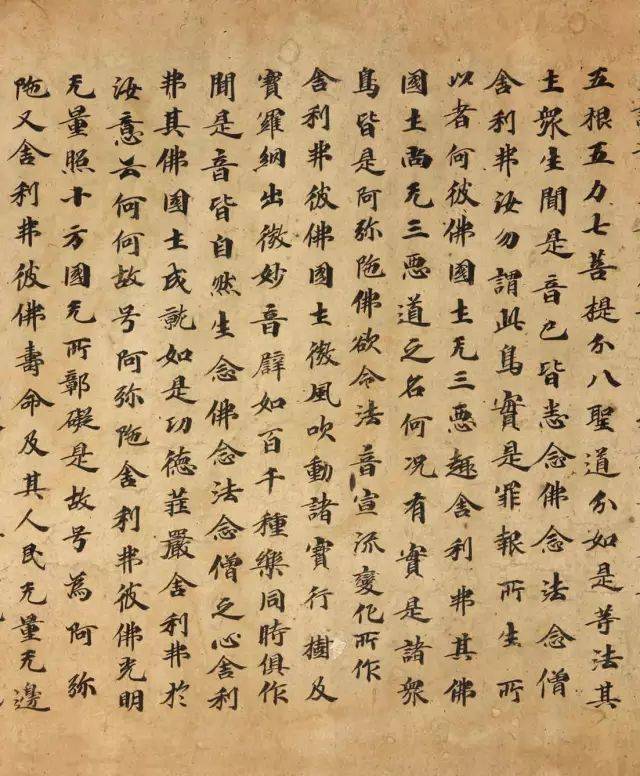 五根五力七菩提分八聖道分如是等法其
土衆生聞是音已皆悉念佛念法念僧
舍利弗汝勿謂此鳥實是罪報所生所
以者何彼佛國土无三惡趣舍利弗其佛
國土尚无三惡道之名何況有實是諸衆
鳥皆是阿弥陁佛欲令法音宣流變化所作
舍利弗彼佛國土微風吹動諸寳行樹及
寳羅網出微妙音辟如百千種樂同時俱作
聞是音皆自然生念佛念法念僧之心舍利
弗其佛國土成就如是功德莊嚴舍利弗於
汝意云何何故号阿弥陁舍利弗彼佛光明
无量照十方國无所鄣礙是故号為阿弥
陁又舍利弗彼佛壽命及其人民无量无邊